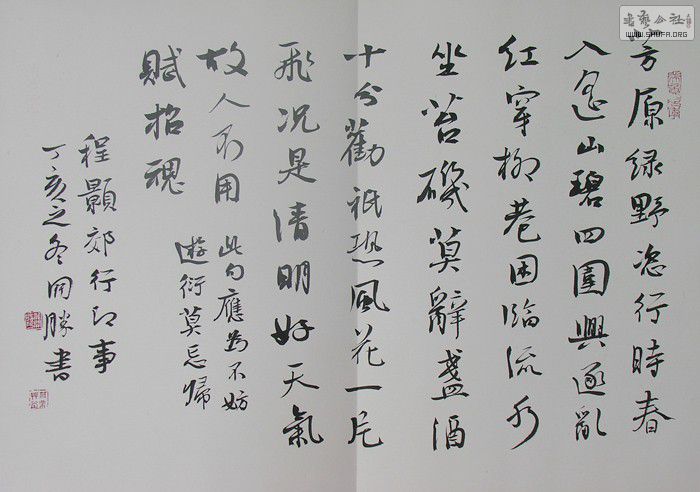 芳原绿野恣行時春
入遥山碧四圍興逐亂
红穿柳巷困臨流水
坐苔磯莫辭盞酒
十分勸衹恐風花一片
飛况是清明好天氣
故人不用
賦招魂
此句應為不妨
遊衍莫忘歸
程顥郊行即事
丁亥之冬勝書
书艺公社
WWW.SHUFA.ORG